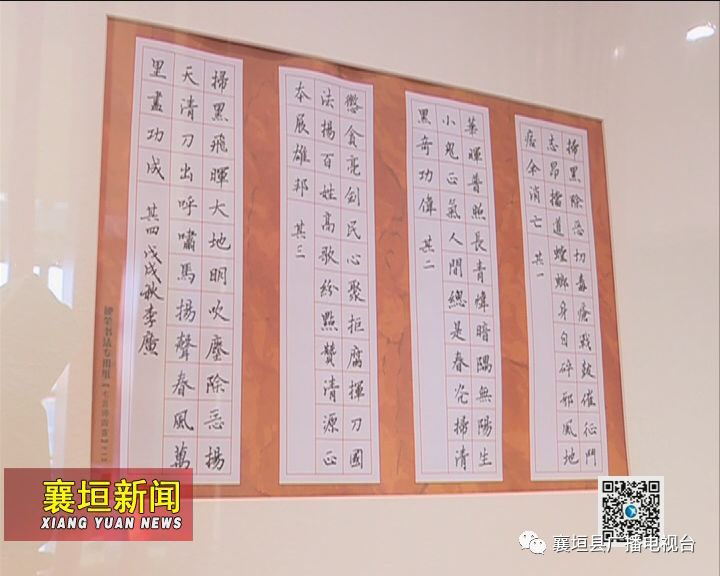 掃黑除惡切毒瘡戰鼓催征鬥
志昂擋道螳螂身自碎邪風地
痞伞消亡 其一
華暉普照長青煒暗隅無陽生
小鬼正氣人間總是春光掃清
黑奇功偉 其二
懲貪亮劍民心聚拒腐揮刀國
法揚百姓高歌紛點贊清源正
本展雄邦 其三
掃黑飛暉大地明吹塵除惡揚
天清刀出呼嘯馬揚聲春風萬
里畫功成 其四 戊戌秋李廣
硬笔书法专用纸
襄垣新闻
XIANG YUAN NEWS
襄垣县广播电视台